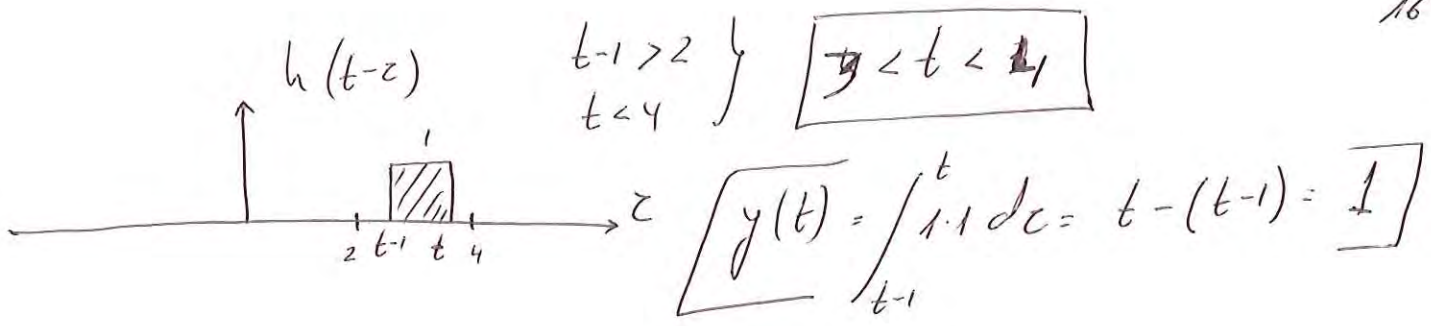 16
h(t-τ)
t-1>2
t<4
3 < t < 4
1
2 t-1 t 4 τ
y(t) = ∫_{t-1}^{t} 1·1 dτ = t-(t-1) = 1